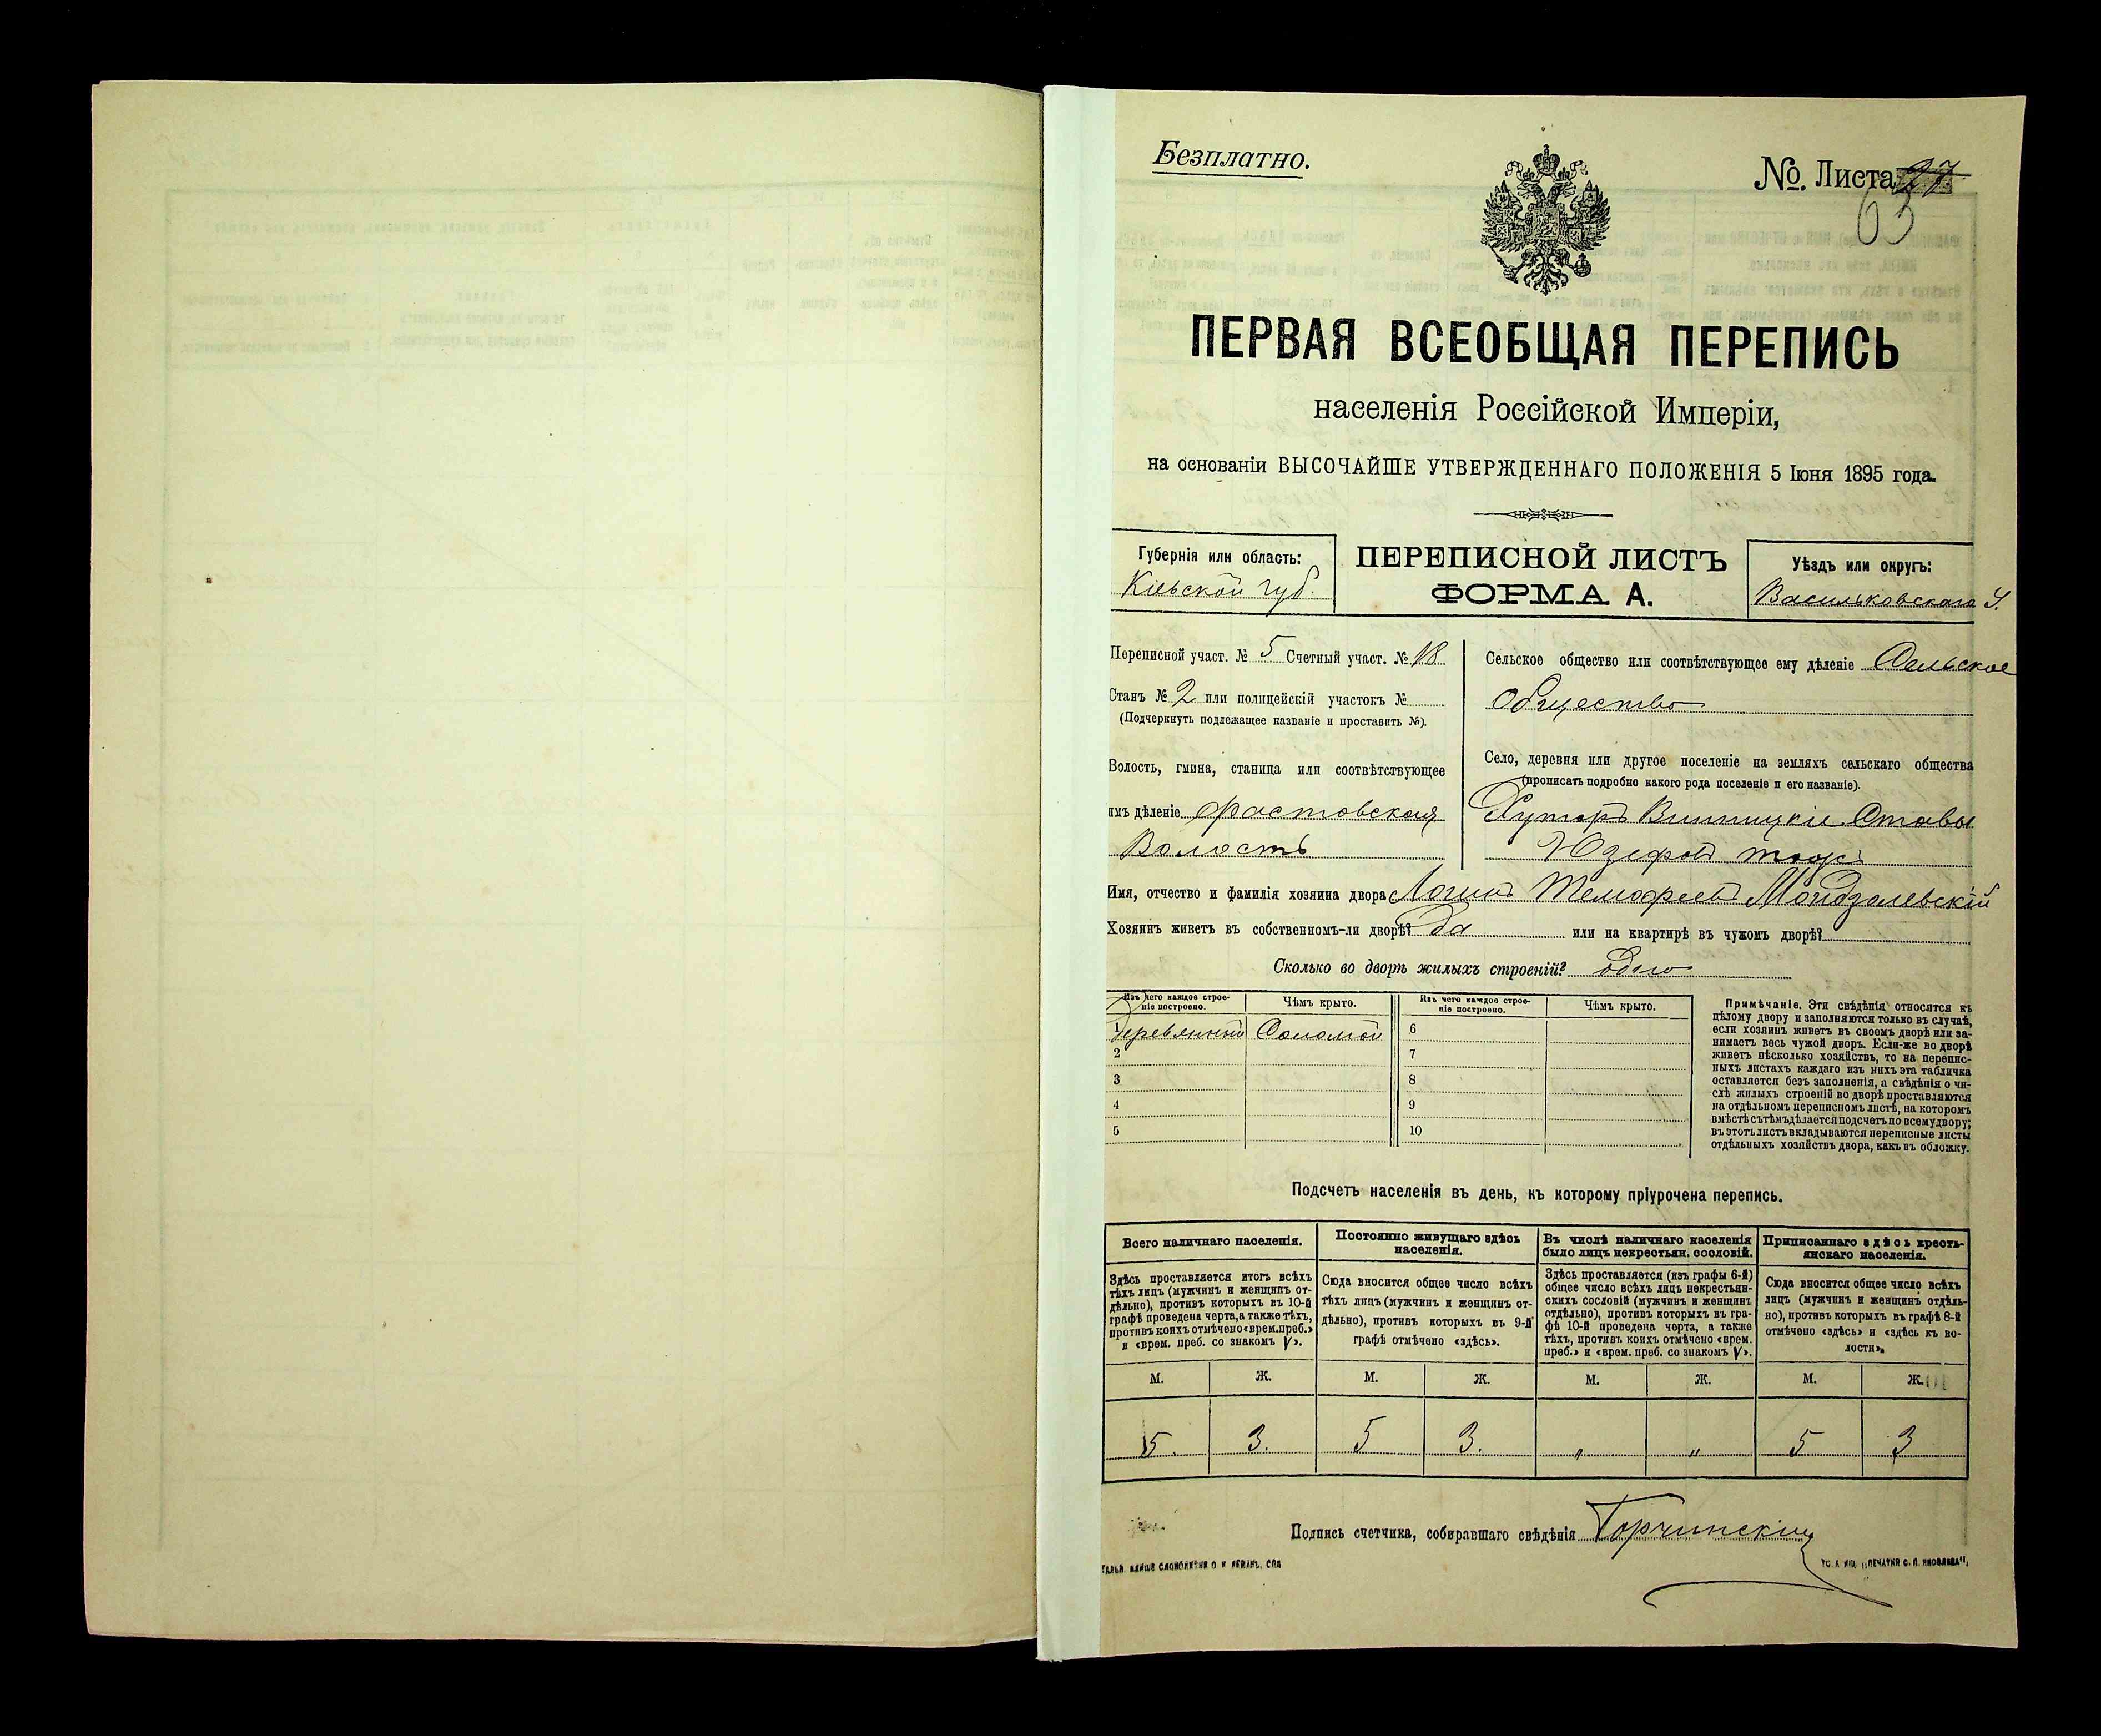 Безплатно.
№. Листа 27
63
ПЕРВАЯ ВСЕОБЩАЯ ПЕРЕПИСЬ
населенія Россійской Имперіи,
на основаніи ВЫСОЧАЙШЕ УТВЕРЖДЕННАГО ПОЛОЖЕНІЯ 5 Іюня 1895 года.
Губернія или область:
Кіевской губ.
ПЕРЕПИСНОЙ ЛИСТЪ
ФОРМА А.
Уѣздъ или округъ:
Васильковскаго У.
Переписной участ. № 5 Счетный участ. № 18
Станъ № 2 или полицейскій участокъ №
(Подчеркнуть подлежащее названіе и проставить №).
Волость, гмина, станица или соотвѣтствующее
имъ дѣленіе Фастовская
Волость
Сельское общество или соотвѣтствующее ему дѣленіе Сельское
Общество
Село, деревня или другое поселеніе на земляхъ сельскаго общества
(прописать подробно какого рода поселеніе и его названіе).
Хуторъ Винницкіе Ставы
Юзефов тож
Имя, отчество и фамилія хозяина двора Логинъ Мондзалевскій
Хозяинъ живетъ въ собственномъ-ли дворѣ? Да или на квартирѣ въ чужомъ дворѣ?
Сколько во дворѣ жилыхъ строеній? одно
Изъ чего каждое строе-
ніе построено.
Чѣмъ крыто.
Изъ чего каждое строе-
ніе построено.
Чѣмъ крыто.
1 Деревянный Соломой
2
3
4
5
6
7
8
9
10
Примѣчаніе. Эти свѣдѣнія относятся къ
цѣлому двору и заполняются только въ случаѣ,
если хозяинъ живетъ въ своемъ дворѣ или за-
нимаетъ весь чужой дворъ. Если-же во дворѣ
живетъ нѣсколько хозяйствъ, то на перепис-
ныхъ листахъ каждаго изъ нихъ эта табличка
оставляется безъ заполненія, а свѣдѣнія о чи-
слѣ жилыхъ строеній во дворѣ проставляются
на отдѣльномъ переписномъ листѣ, на которомъ
вмѣстѣ съ тѣмъ дѣлается подсчетъ по всему двору;
въ этотъ листъ вкладываются переписные листы
отдѣльныхъ хозяйствъ двора, какъ въ обложку.
Подсчетъ населенія въ день, къ которому пріурочена перепись.
Всего наличнаго населенія.
Постоянно живущаго здѣсь
населенія.
Въ числѣ наличнаго населенія
было лицъ некрестьян. сословій.
Приписаннаго здѣсь кресть-
янскаго населенія.
Здѣсь проставляется итогъ всѣхъ
тѣхъ лицъ (мужчинъ и женщинъ от-
дѣльно), противъ которыхъ въ 10-й
графѣ проведена черта, а также тѣхъ,
противъ коихъ отмѣчено «врем. преб.»
и «врем. преб. со знакомъ V».
Сюда вносится общее число всѣхъ
тѣхъ лицъ (мужчинъ и женщинъ от-
дѣльно), противъ которыхъ въ 9-й
графѣ отмѣчено «здѣсь».
Здѣсь проставляется (изъ графы 6-й)
общее число всѣхъ лицъ некрестьян-
скихъ сословій (мужчинъ и женщинъ
отдѣльно), противъ которыхъ въ гра-
фѣ 10-й проведена черта, а также
тѣхъ, противъ коихъ отмѣчено «врем.
преб.» и «врем. преб. со знакомъ V».
Сюда вносится общее число всѣхъ
лицъ (мужчинъ и женщинъ отдѣль-
но), противъ которыхъ въ графѣ 8-й
отмѣчено «здѣсь» и «здѣсь къ во-
лости».
М. Ж. М. Ж. М. Ж. М. Ж.
5. 3. 5 3. „ „ 5 3
Подпись счетчика, собиравшаго свѣдѣнія Горчинский